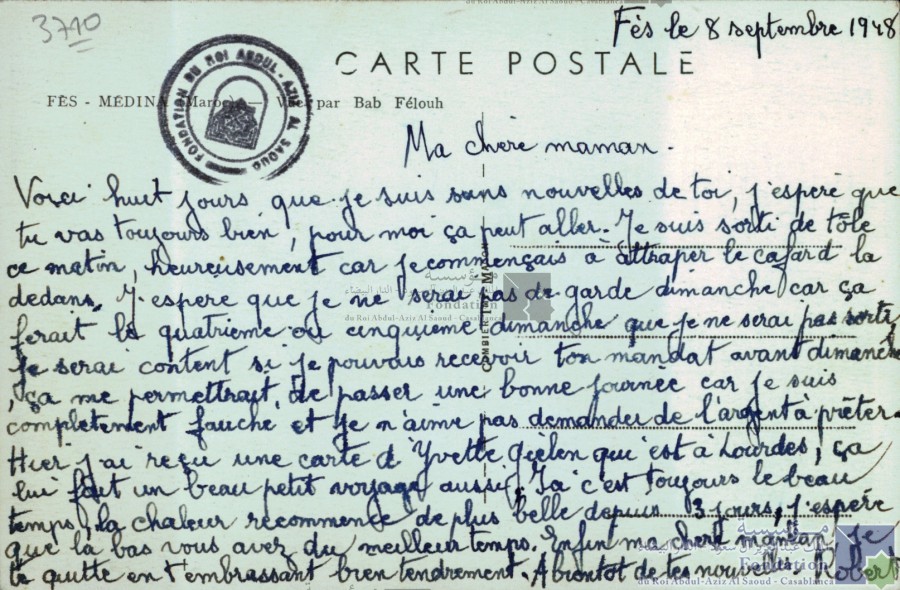 du Roi Abdul-Aziz Al Saoud - Casablanca
3710
Fès le 8 septembre 1948
CARTE POSTALE
FONDATION DU ROI ABDUL-AZIZ AL SAOUD
FÈS - MÉDINA (Maroc) — Vue par Bab Félouh
Ma chère maman.
Voici huit jours que je suis sans nouvelles de toi, j'espère que
tu vas toujours bien, pour moi ça peut aller. Je suis sorti de tôle
ce matin, heureusement car je commençais à attraper le cafard la
dedans. J'espere que je ne serai pas de garde dimanche car ça
ferait le quatrieme ou cinquieme dimanche que je ne serai pas sorti,
Je serai content si je pouvais recevoir ton mandat avant dimanche
, ça me permettrait de passer une bonne journée car je suis
completement fauché et je n'aime pas demander de l'argent à prêter.
Hier j'ai reçu une carte d'Yvette Gielen qui est à Lourdes, ça
lui fait un beau petit voyage aussi. Ici c'est toujours le beau
temps, la chaleur recommence de plus belle depuis 3 jours, j'espère
que la bas vous avez du meilleur temps. Enfin ma chere maman je
te quitte en t'embrassant bien tendrement. A bientôt de tes nouvelles. Robert
Fondation
du Roi Abdul-Aziz Al Saoud - Casablanca
مؤسسة
Fondation
du Roi Abdul-Aziz Al Saoud - Casablanca